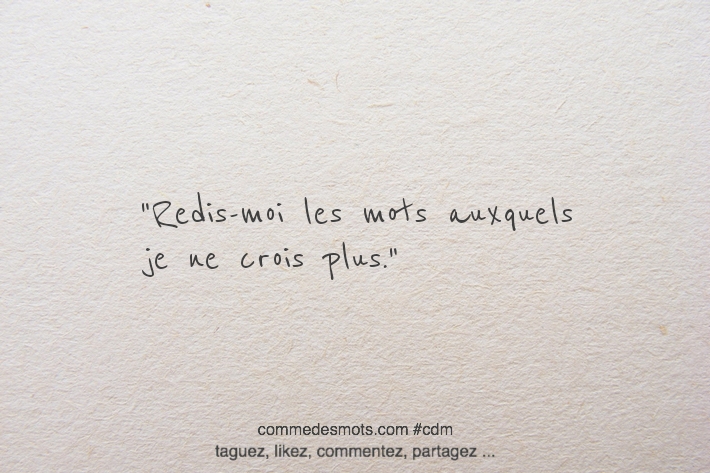 "Redis-moi les mots auxquels
je ne crois plus."
commedesmots.com #cdm
taguez, likez, commentez, partagez ...